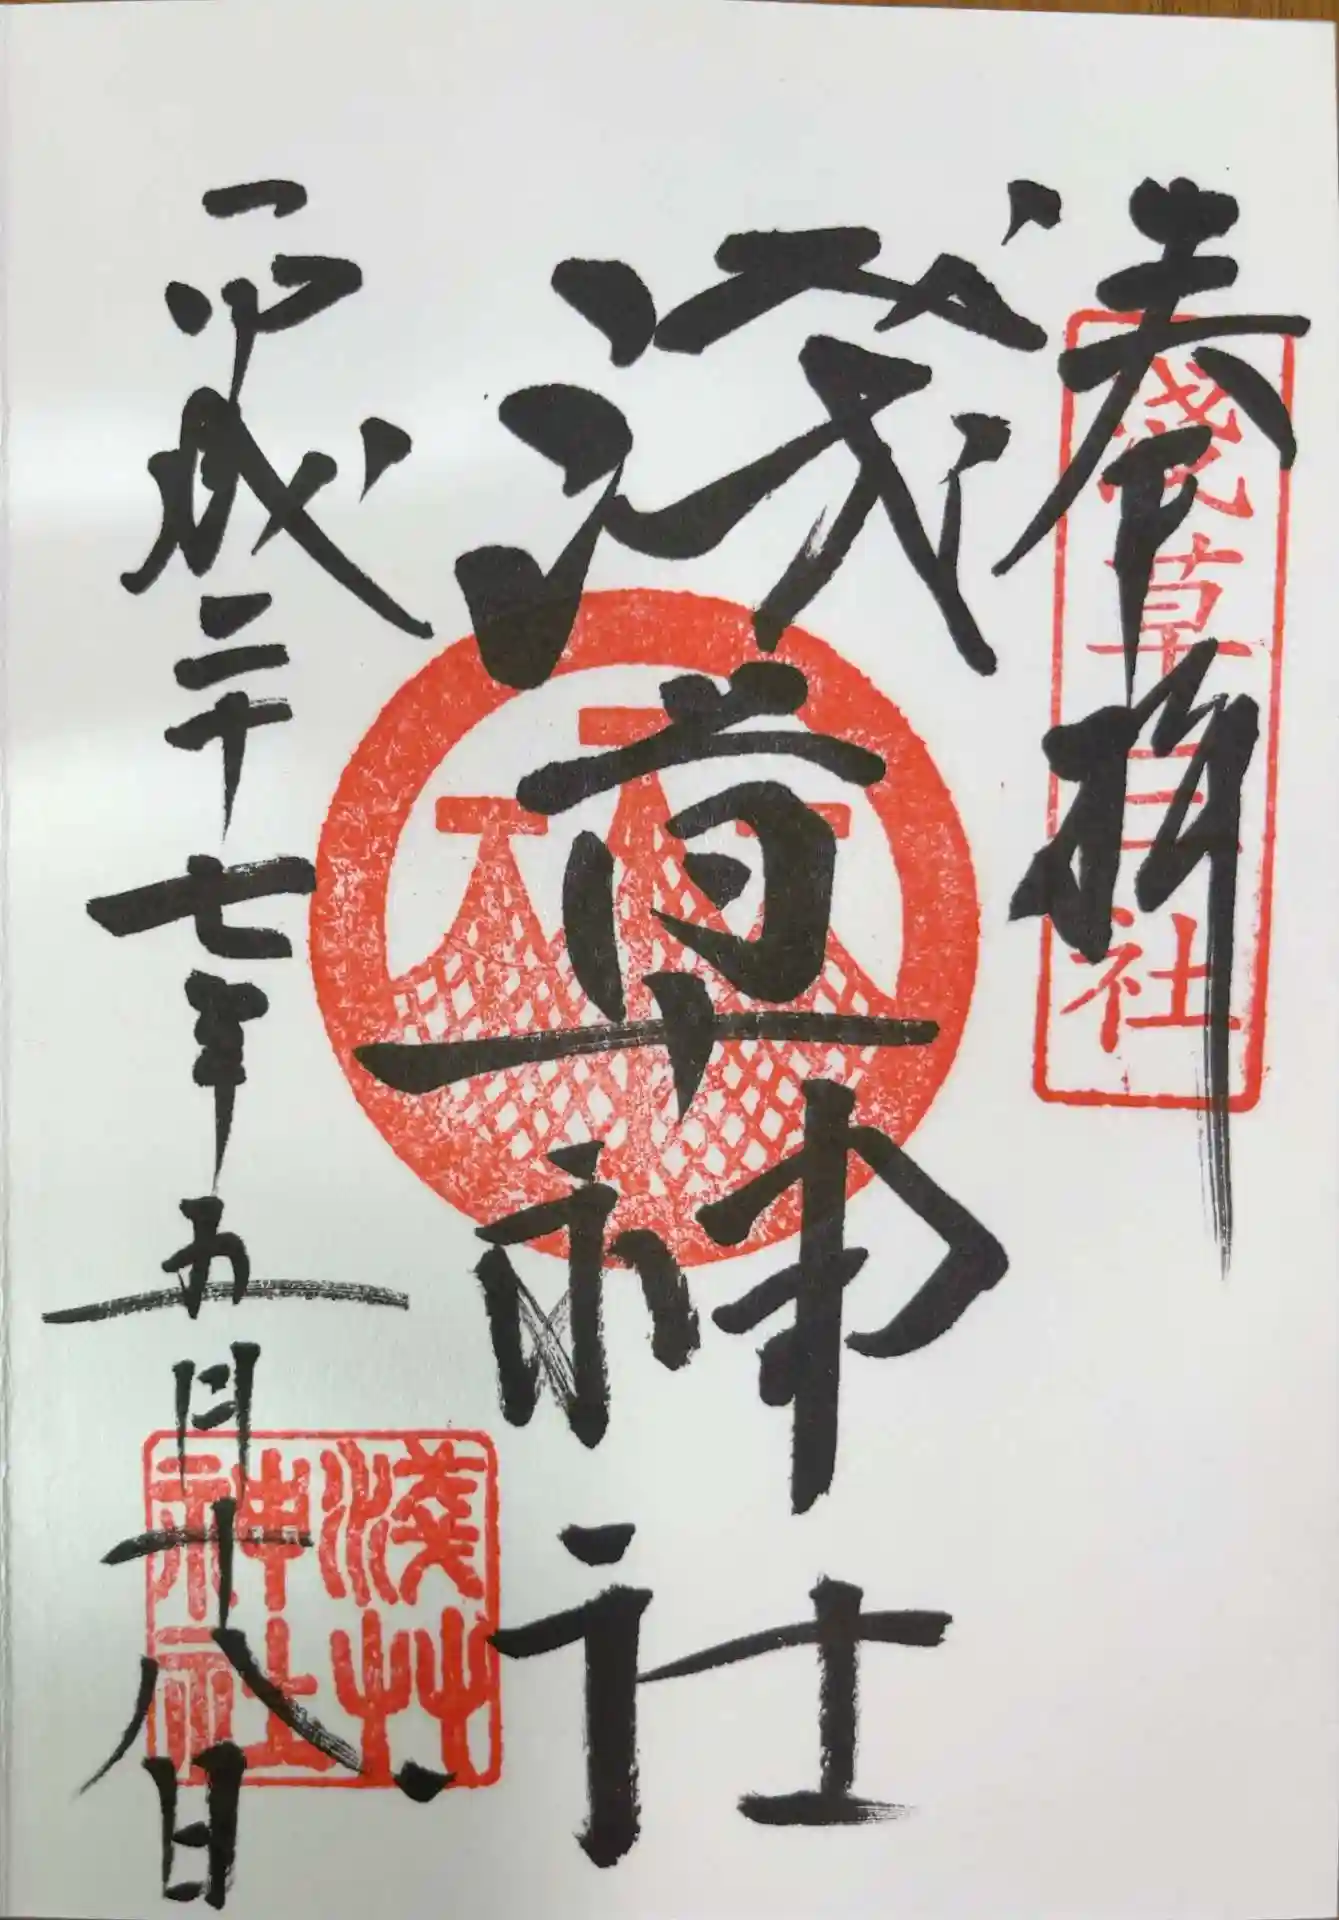 奉拝
淺草三社
淺草神社
平成二十七年五月十八日
淺草
神社